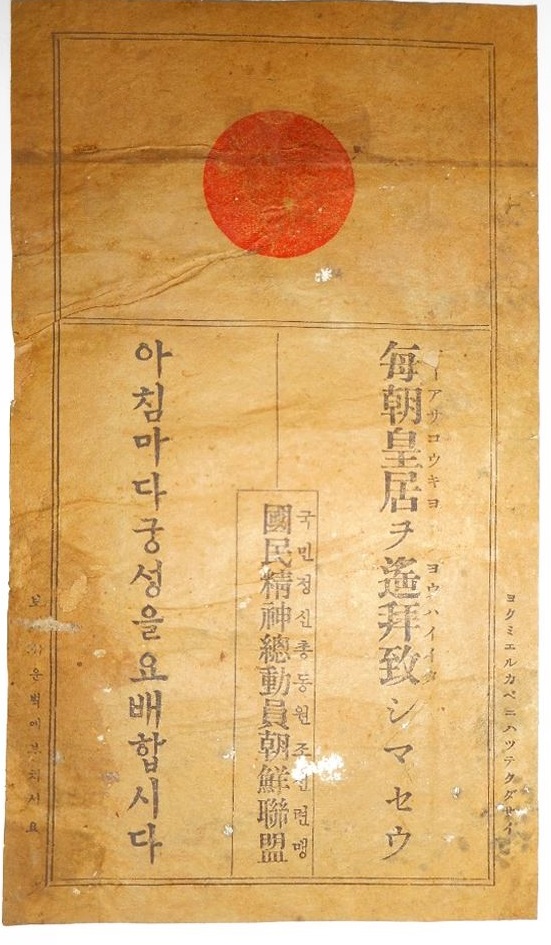 ヨクミエルカベニハツテクダサイ
アサコウキヨ ヨウハイイタ
每朝皇居ヲ遙拜致シマセウ
국민정신총동원조선련맹
國民精神總動員朝鮮聯盟
아침마다궁성을요배합시다
보 운벽에부치시요